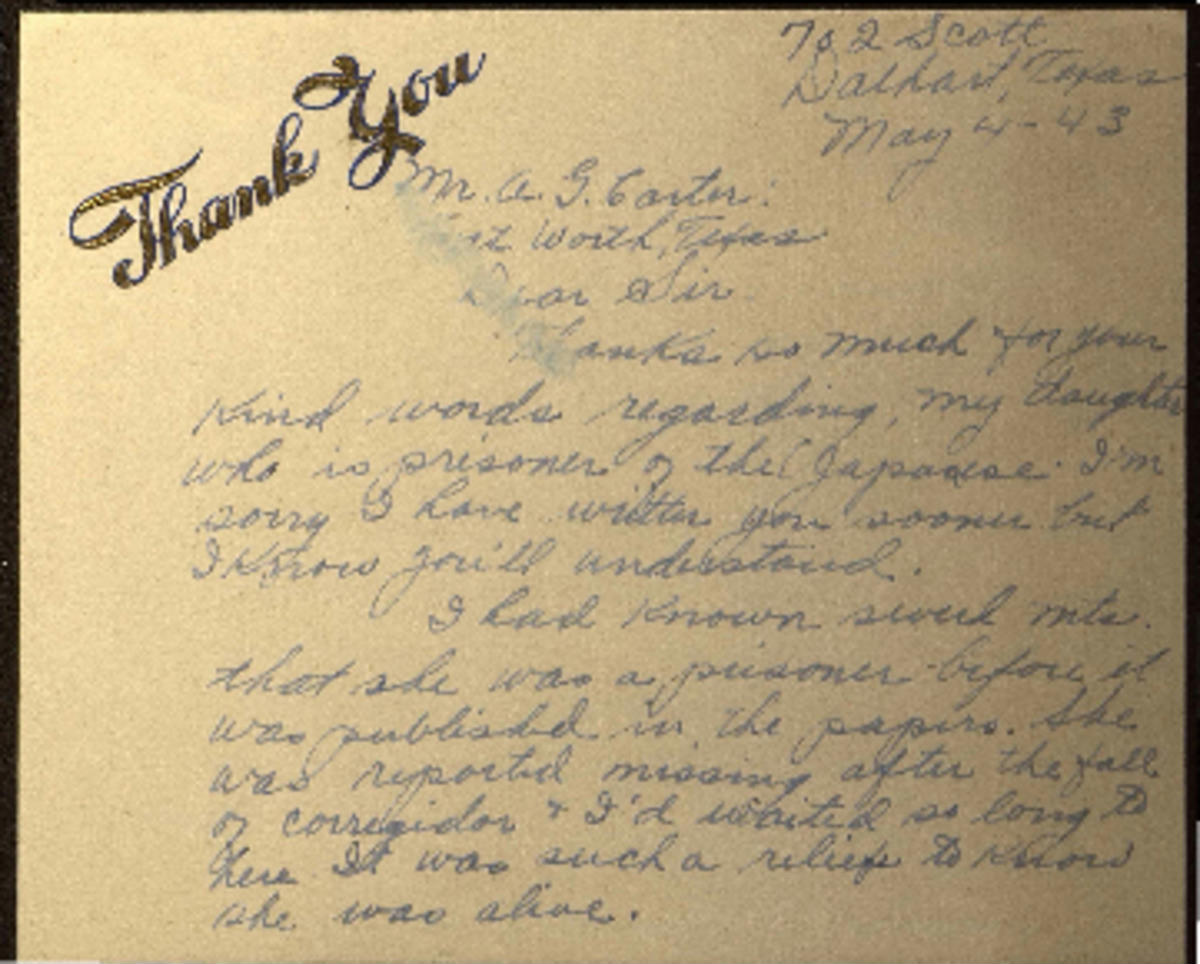 Thank You
702 Scott
Dalhart, Texas
May 4-43
Mr. A. G. Carter:
Worth, Texas
Dear Sir
Thanks so much for your
Kind words regarding, my daughter
who is prisoner of the Japanese. I'm
sorry I have written you sooner but
I Know you'll understand.
I had Known mts.
that she was a prisoner before it
was published in the papers. She
was reported missing after the fall
of corregidor & I'd waited so long to
here. It was such a relief to Know
she was alive.